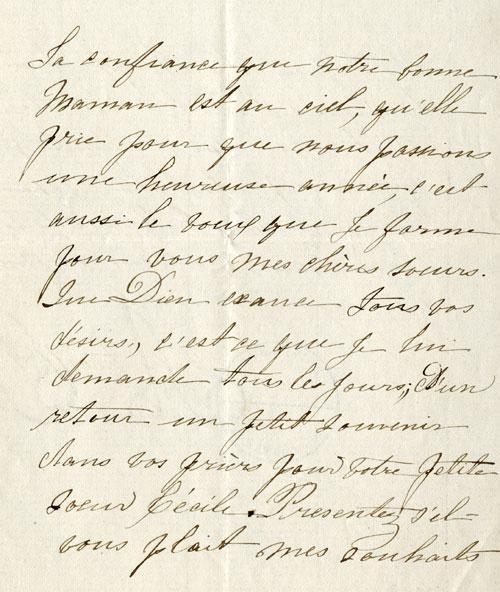 la confiance que notre bonne
Maman est au ciel, qu'elle
prie pour que nous passions
une heureuse année, c'est
aussi le voeux que je forme
pour vous mes chères soeurs.
Que Dieu exauce tous vos
désirs, c'est ce que je lui
demande tous les jours; D'un
retour un petit souvenir
dans vos prièrs pour votre petite
soeur Cécile. Presentez s'il-
vous plait mes souhaits